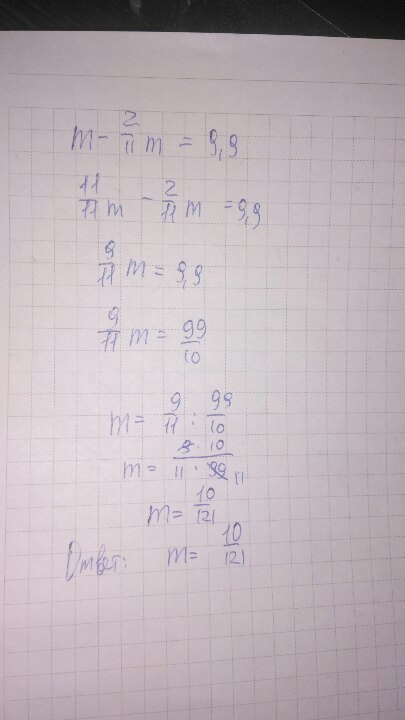 m - 2/11 m = 9,9
11/11 m - 2/11 m = 9,9
9/11 m = 9,9
9/11 m = 99/10
m = 9/11 : 99/10
m = 9 · 10 / 11 · 99 11
m = 10/121
Ответ: m = 10/121